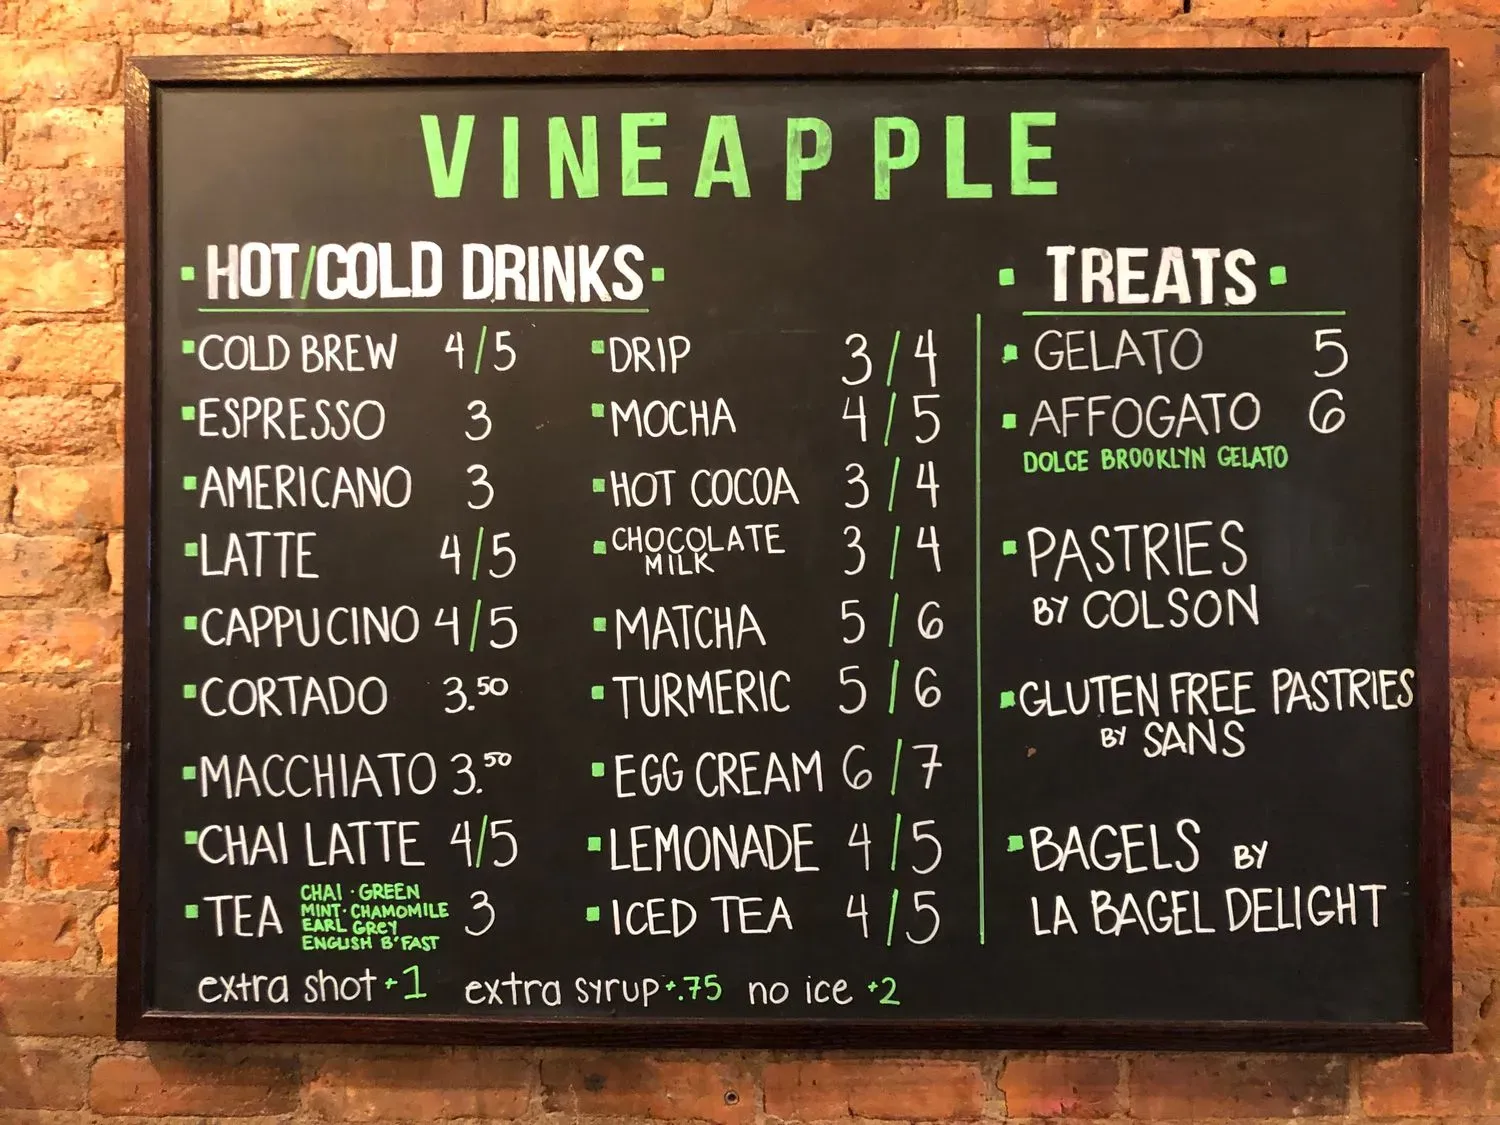 VINEAPPLE
HOT/COLD DRINKS
COLD BREW 4/5
ESPRESSO 3
AMERICANO 3
LATTE 4/5
CAPPUCINO 4/5
CORTADO 3.50
MACCHIATO 3.50
CHAI LATTE 4/5
TEA CHAI · GREEN
MINT · CHAMOMILE
EARL GREY
ENGLISH B'FAST 3
DRIP 3/4
MOCHA 4/5
HOT COCOA 3/4
CHOCOLATE
MILK 3/4
MATCHA 5/6
TURMERIC 5/6
EGG CREAM 6/7
LEMONADE 4/5
ICED TEA 4/5
extra shot +1 extra syrup +.75 no ice +2
TREATS
GELATO 5
AFFOGATO 6
DOLCE BROOKLYN GELATO
PASTRIES
BY COLSON
GLUTEN FREE PASTRIES
BY SANS
BAGELS BY
LA BAGEL DELIGHT